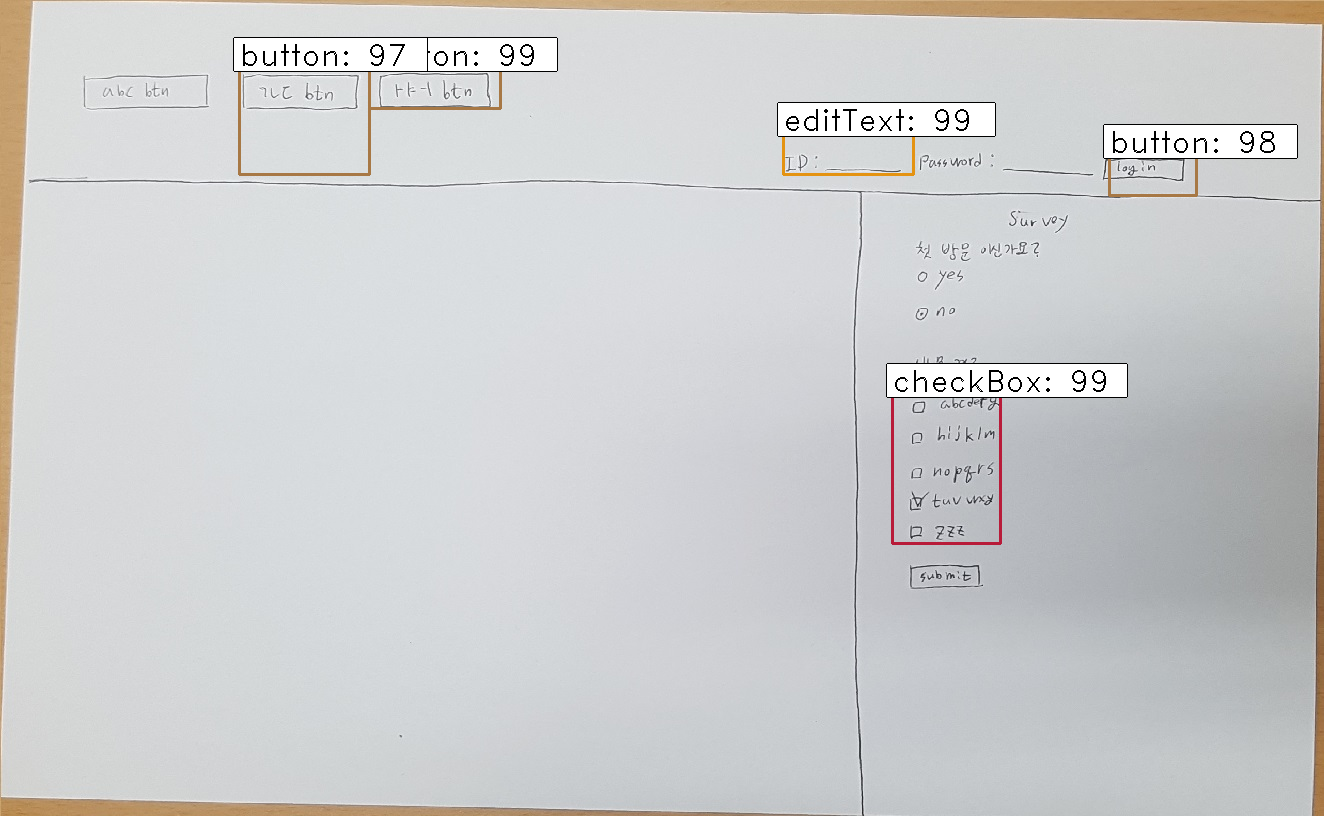 button: 97 on: 99
abc btn
ㄱㄴㄷ btn
ㅏㅑㅓ btn
editText: 99
button: 98
ID:
Password:
login
Survey
첫 방문 이신가요?
yes
no
checkBox: 99
abcdefg
hijklm
nopqrs
tuvwxy
zzz
submit